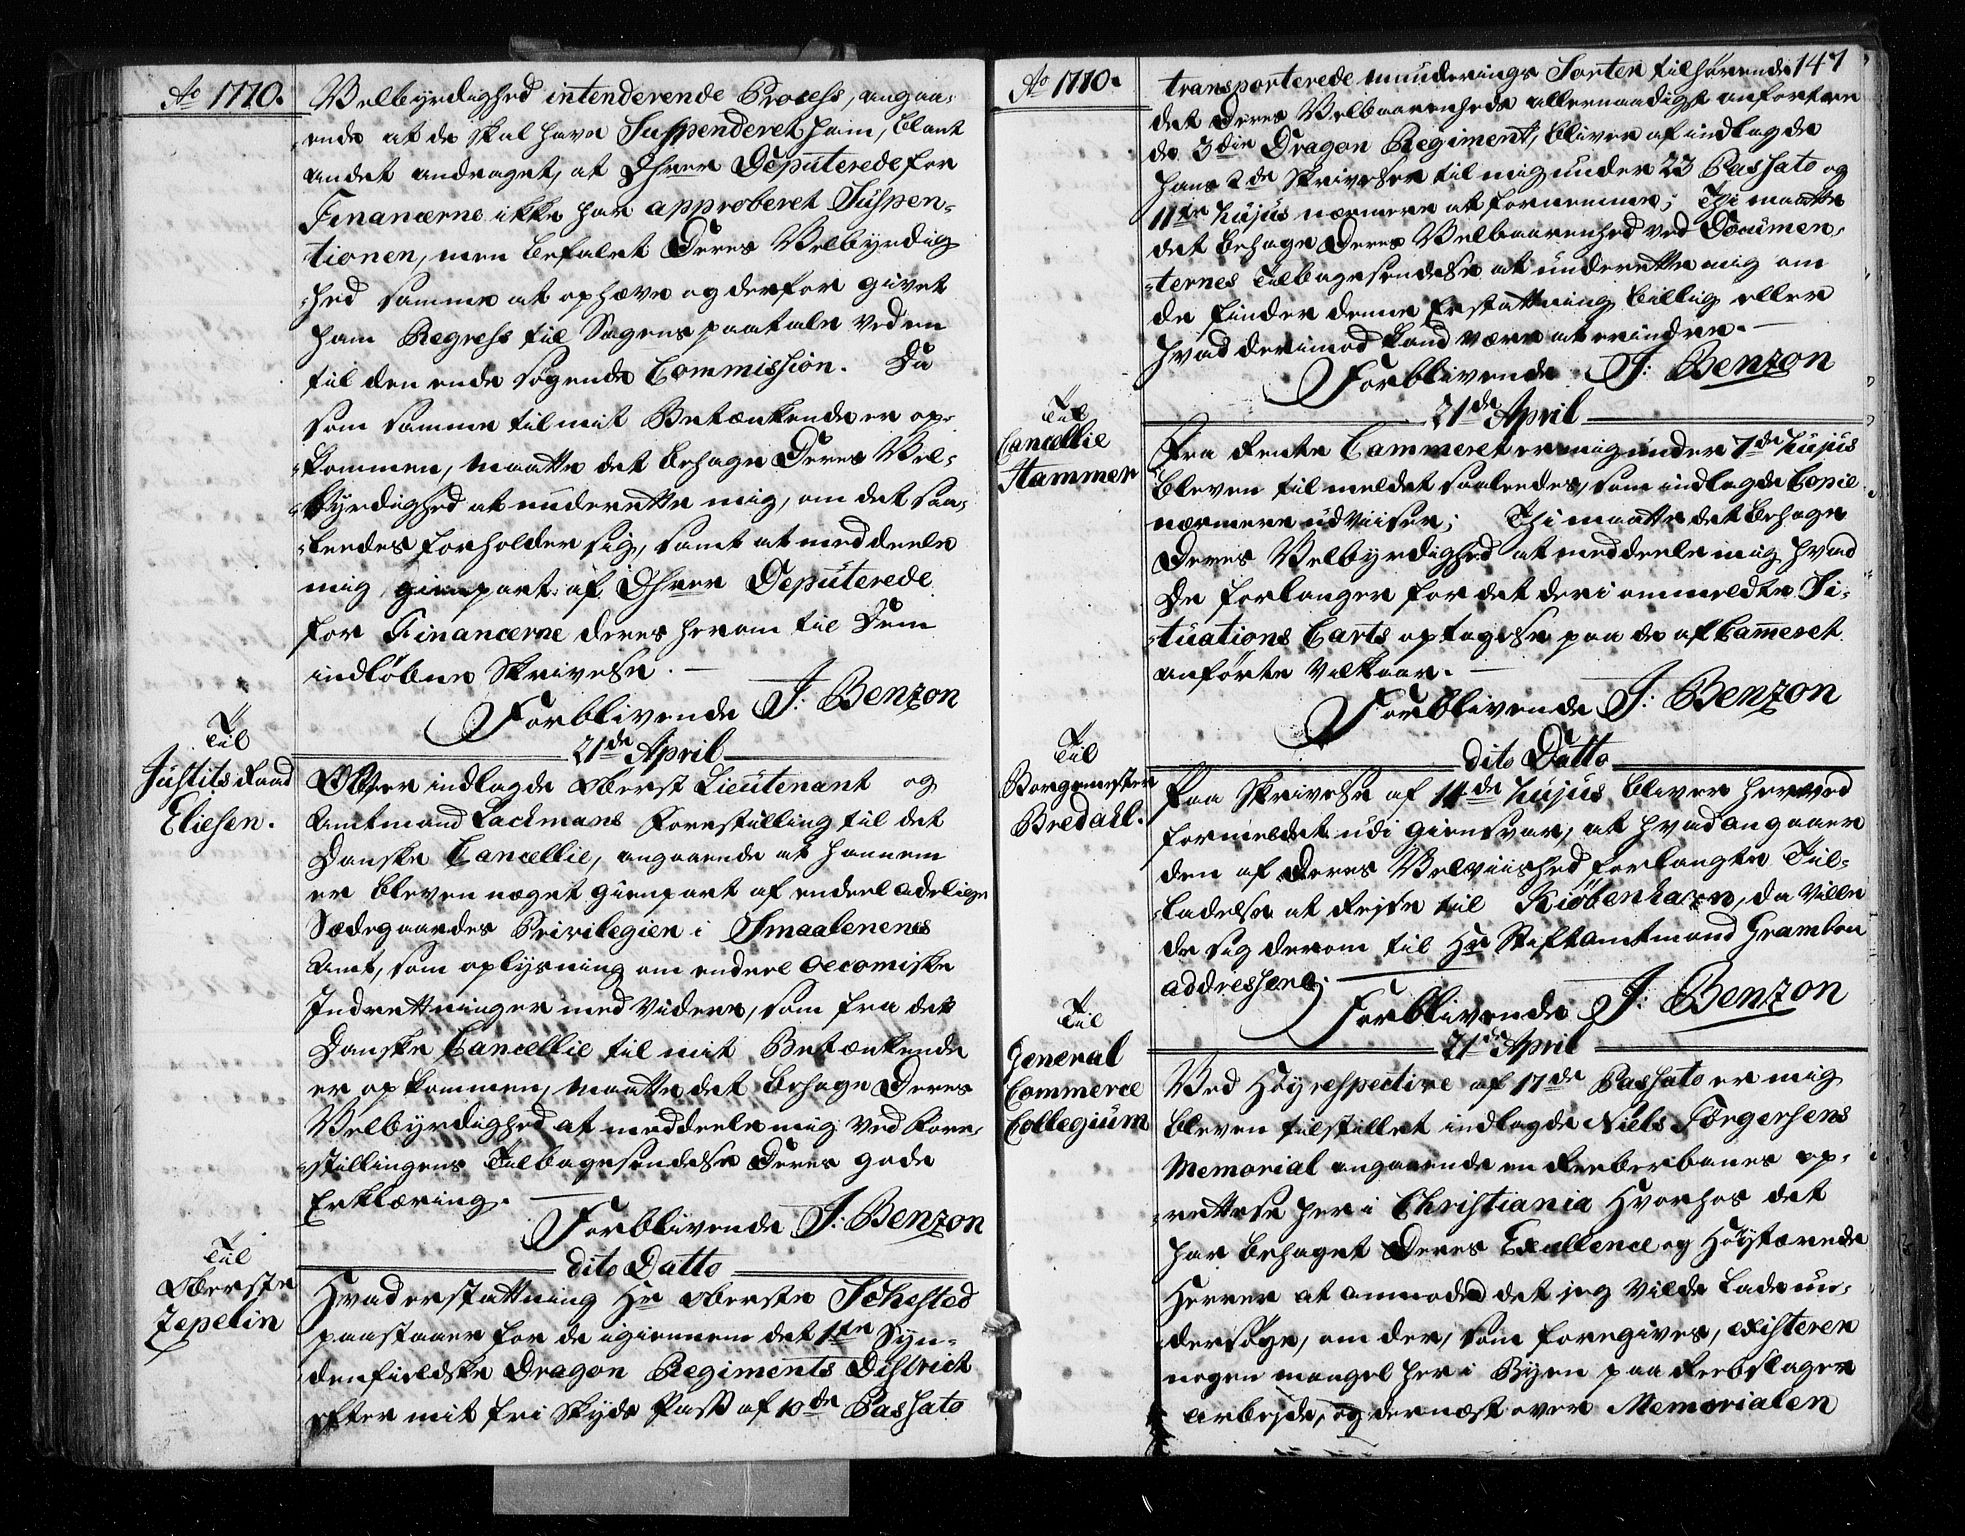 Ao 1770.
Velbyrdighed intenderende Process, angaa-
ende at de skal have Suspenderet ham, blant
andet andraget, at Dhrer Deputerede for
Financerne ikke har approberet Suspen-
tionen, men befalet Deres Velbyrdig
-hed samme at ophæve og derfor givet
ham Regress til Sagens paatale ved en
til den ende søgende Commission. Da
som samme til mit Betænkende er op-
-kommen, maatte det behage Deres Vel-
-byrdighed at underrette mig, om det saa-
-leedes forholder sig, samt at meddeele
mig gienpart af Dhrer Deputerede
for Financerne deres herom til Dem
indløbne Skrivelse. —
Forblivende J: Benzon
21de April
Til
Justits Raad
Eliesen.
Over indlagde Oberst Lieutenant og
Amtmand Lackmans Forestilling til det
Danske Cancellie, angaaende at hannem
er bleven næget gienpart af endeel adelige
Sædegaardes Privilegier i Smaalenenes
Amt, som oplysning om endeel oecomiske
Indretninger med videre, som fra det
Danske Cancellie til mit Betænkende
er opkommen, maatte det behage Deres
Velbyrdighed at meddeele mig ved Fore-
-stillingens Tilbagesendelse Deres gode
Erklæring. —
Forblivende J: Benzon
dito Datto
Til
Oberste
Zepelin
Hvad erstattning Hr Oberste Schested
paastaaer for de igiennem det 1ste Syn-
denfieldske Dragon Regiments District
efter mit fri Skyds Pass af 10de Passato
Ao 1770.
147
transporterede munderings Sorter tilhørende
det Deres Velbaarenheds allernaadigst anfortroe
de 3die Dragon Regiment, bliver af indlagde
hans 2de Skrivelser til mig under 23 Passato og
11te hujus nærmere at fornemme; Thi maatte
det behage Deres Velbaarenhed ved Documen-
-ternes Tilbagesendelse at underrette mig om
de finder denne Erstattning billig eller
hvad derimod kand være at erindre. —
Forblivende J: Benzon
21de April
Til
Cancellie
Hammer
Fra Rente Cammeret er mig under 7de hujus
bleven tilmeldet saaleedes, som indlagde Copie
nærmere udviiser; Thi maatte det behage
Deres Velbyrdighed at meddeele mig hvad
De forlanger for det deri ommeldte Si-
-tuations Carts optagelse paa de af Cameret
anførte Vilkaar. —
Forblivende J: Benzon
dito Datto
Til
Borgemester
Bredahl.
Paa Skrivelse af 14de hujus bliver herved
formeldet udi giensvar, at hvad angaaer
den af Deres Velviished forlangte Til-
-ladelse at Rejse til Kiøbenhavn, da ville
de sig derom til Hr Stiftamtmand Grambou
addressere.
Forblivende J: Benzon
21de April
Til
General
Commerce
Collegium
Ved Høyrespective af 17de Passato er mig
bleven tilstillet indlagde Niels Jørgersens
Memorial angaaende en Reeberbanes op-
-rettelse her i Christiania hvorhos det
har behaget Deres Excellence og Høystærende
Herrer at anmode det jeg vilde lade un-
dersøge, om der, som foregives, existerer
nogen mangel her i Byen paa Reebslager
arbejde, og dernæst over Memorialen